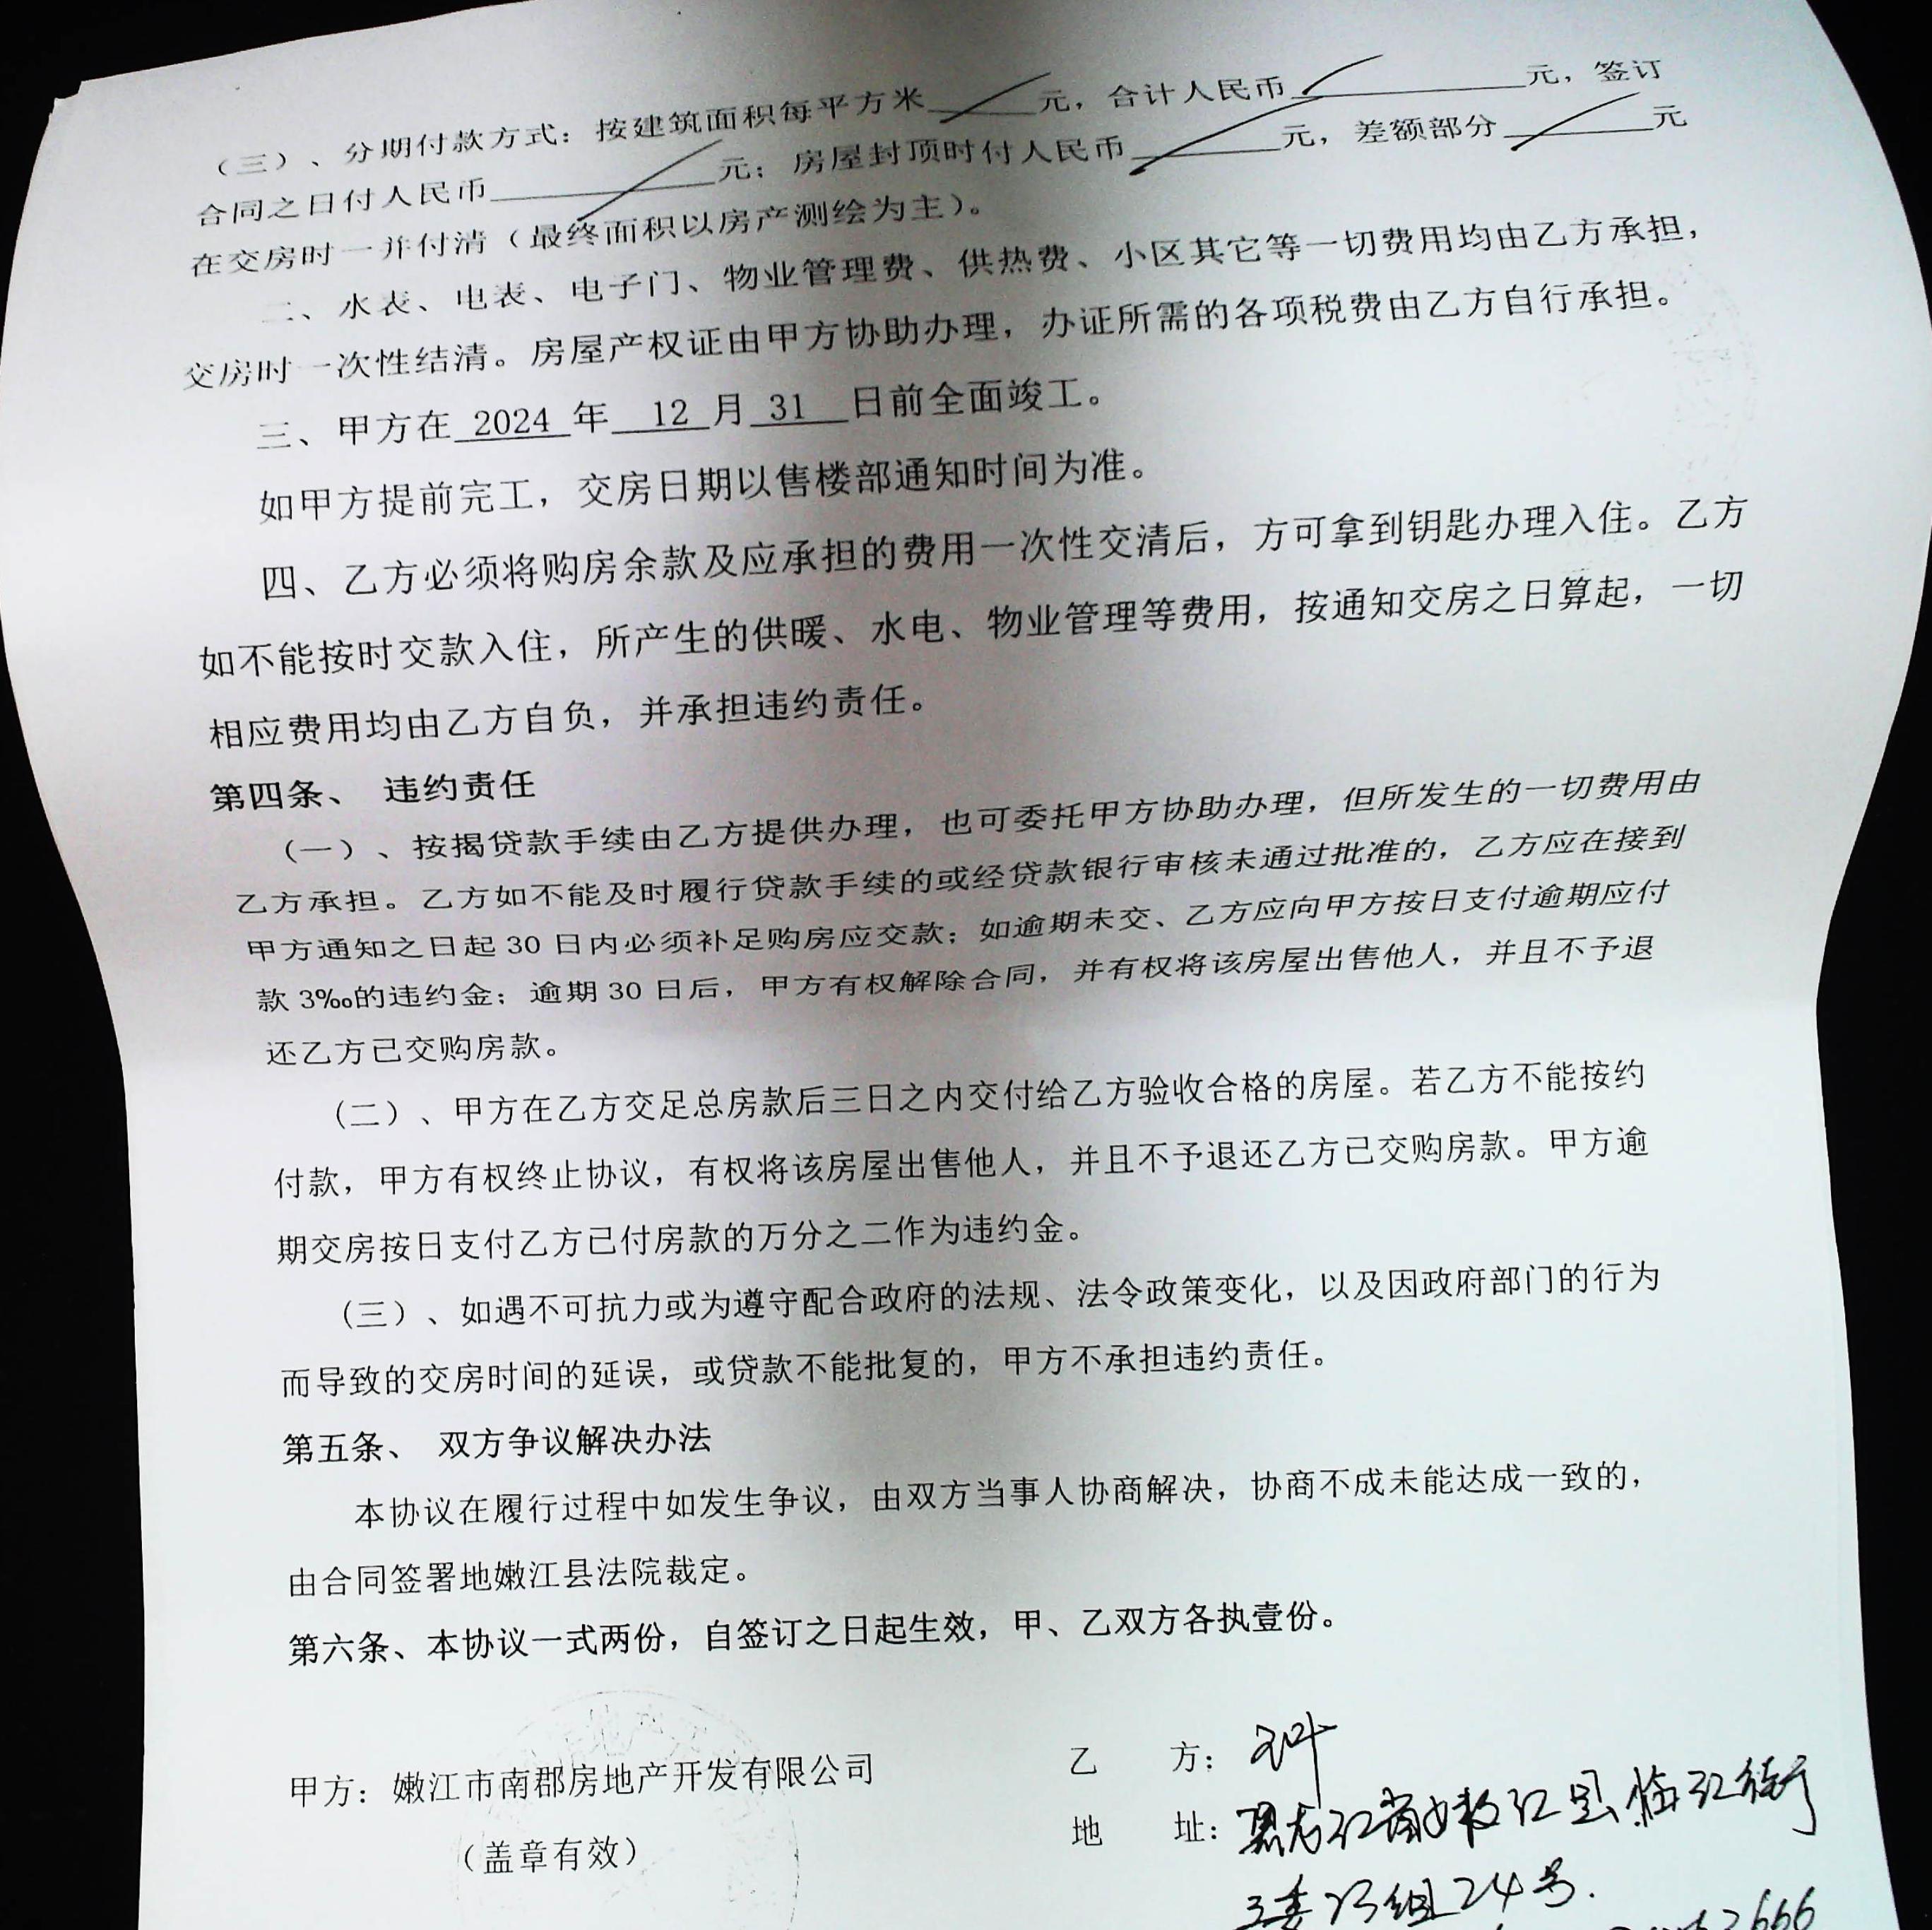 （三）、分期付款方式：按建筑面积每平方米____元，合计人民币____元，签订
合同之日付人民币____元；房屋封顶时付人民币____元，差额部分____元
在交房时一并付清（最终面积以房产测绘为主）。
二、水表、电表、电子门、物业管理费、供热费、小区其它等一切费用均由乙方承担，
交房时一次性结清。房屋产权证由甲方协助办理，办证所需的各项税费由乙方自行承担。
三、甲方在 2024 年 12 月 31 日前全面竣工。
如甲方提前完工，交房日期以售楼部通知时间为准。
四、乙方必须将购房余款及应承担的费用一次性交清后，方可拿到钥匙办理入住。乙方
如不能按时交款入住，所产生的供暖、水电、物业管理等费用，按通知交房之日算起，一切
相应费用均由乙方自负，并承担违约责任。
第四条、 违约责任
（一）、按揭贷款手续由乙方提供办理，也可委托甲方协助办理，但所发生的一切费用由
乙方承担。乙方如不能及时履行贷款手续的或经贷款银行审核未通过批准的，乙方应在接到
甲方通知之日起 30 日内必须补足购房应交款；如逾期未交、乙方应向甲方按日支付逾期应付
款 3‰的违约金；逾期 30 日后，甲方有权解除合同，并有权将该房屋出售他人，并且不予退
还乙方已交购房款。
（二）、甲方在乙方交足总房款后三日之内交付给乙方验收合格的房屋。若乙方不能按约
付款，甲方有权终止协议，有权将该房屋出售他人，并且不予退还乙方已交购房款。甲方逾
期交房按日支付乙方已付房款的万分之二作为违约金。
（三）、如遇不可抗力或为遵守配合政府的法规、法令政策变化，以及因政府部门的行为
而导致的交房时间的延误，或贷款不能批复的，甲方不承担违约责任。
第五条、 双方争议解决办法
本协议在履行过程中如发生争议，由双方当事人协商解决，协商不成未能达成一致的，
由合同签署地嫩江县法院裁定。
第六条、本协议一式两份，自签订之日起生效，甲、乙双方各执壹份。
甲方：嫩江市南郡房地产开发有限公司
（盖章有效）
乙 方：
地 址：黑龙江省嫩江县临江街
委 组24号.
2666